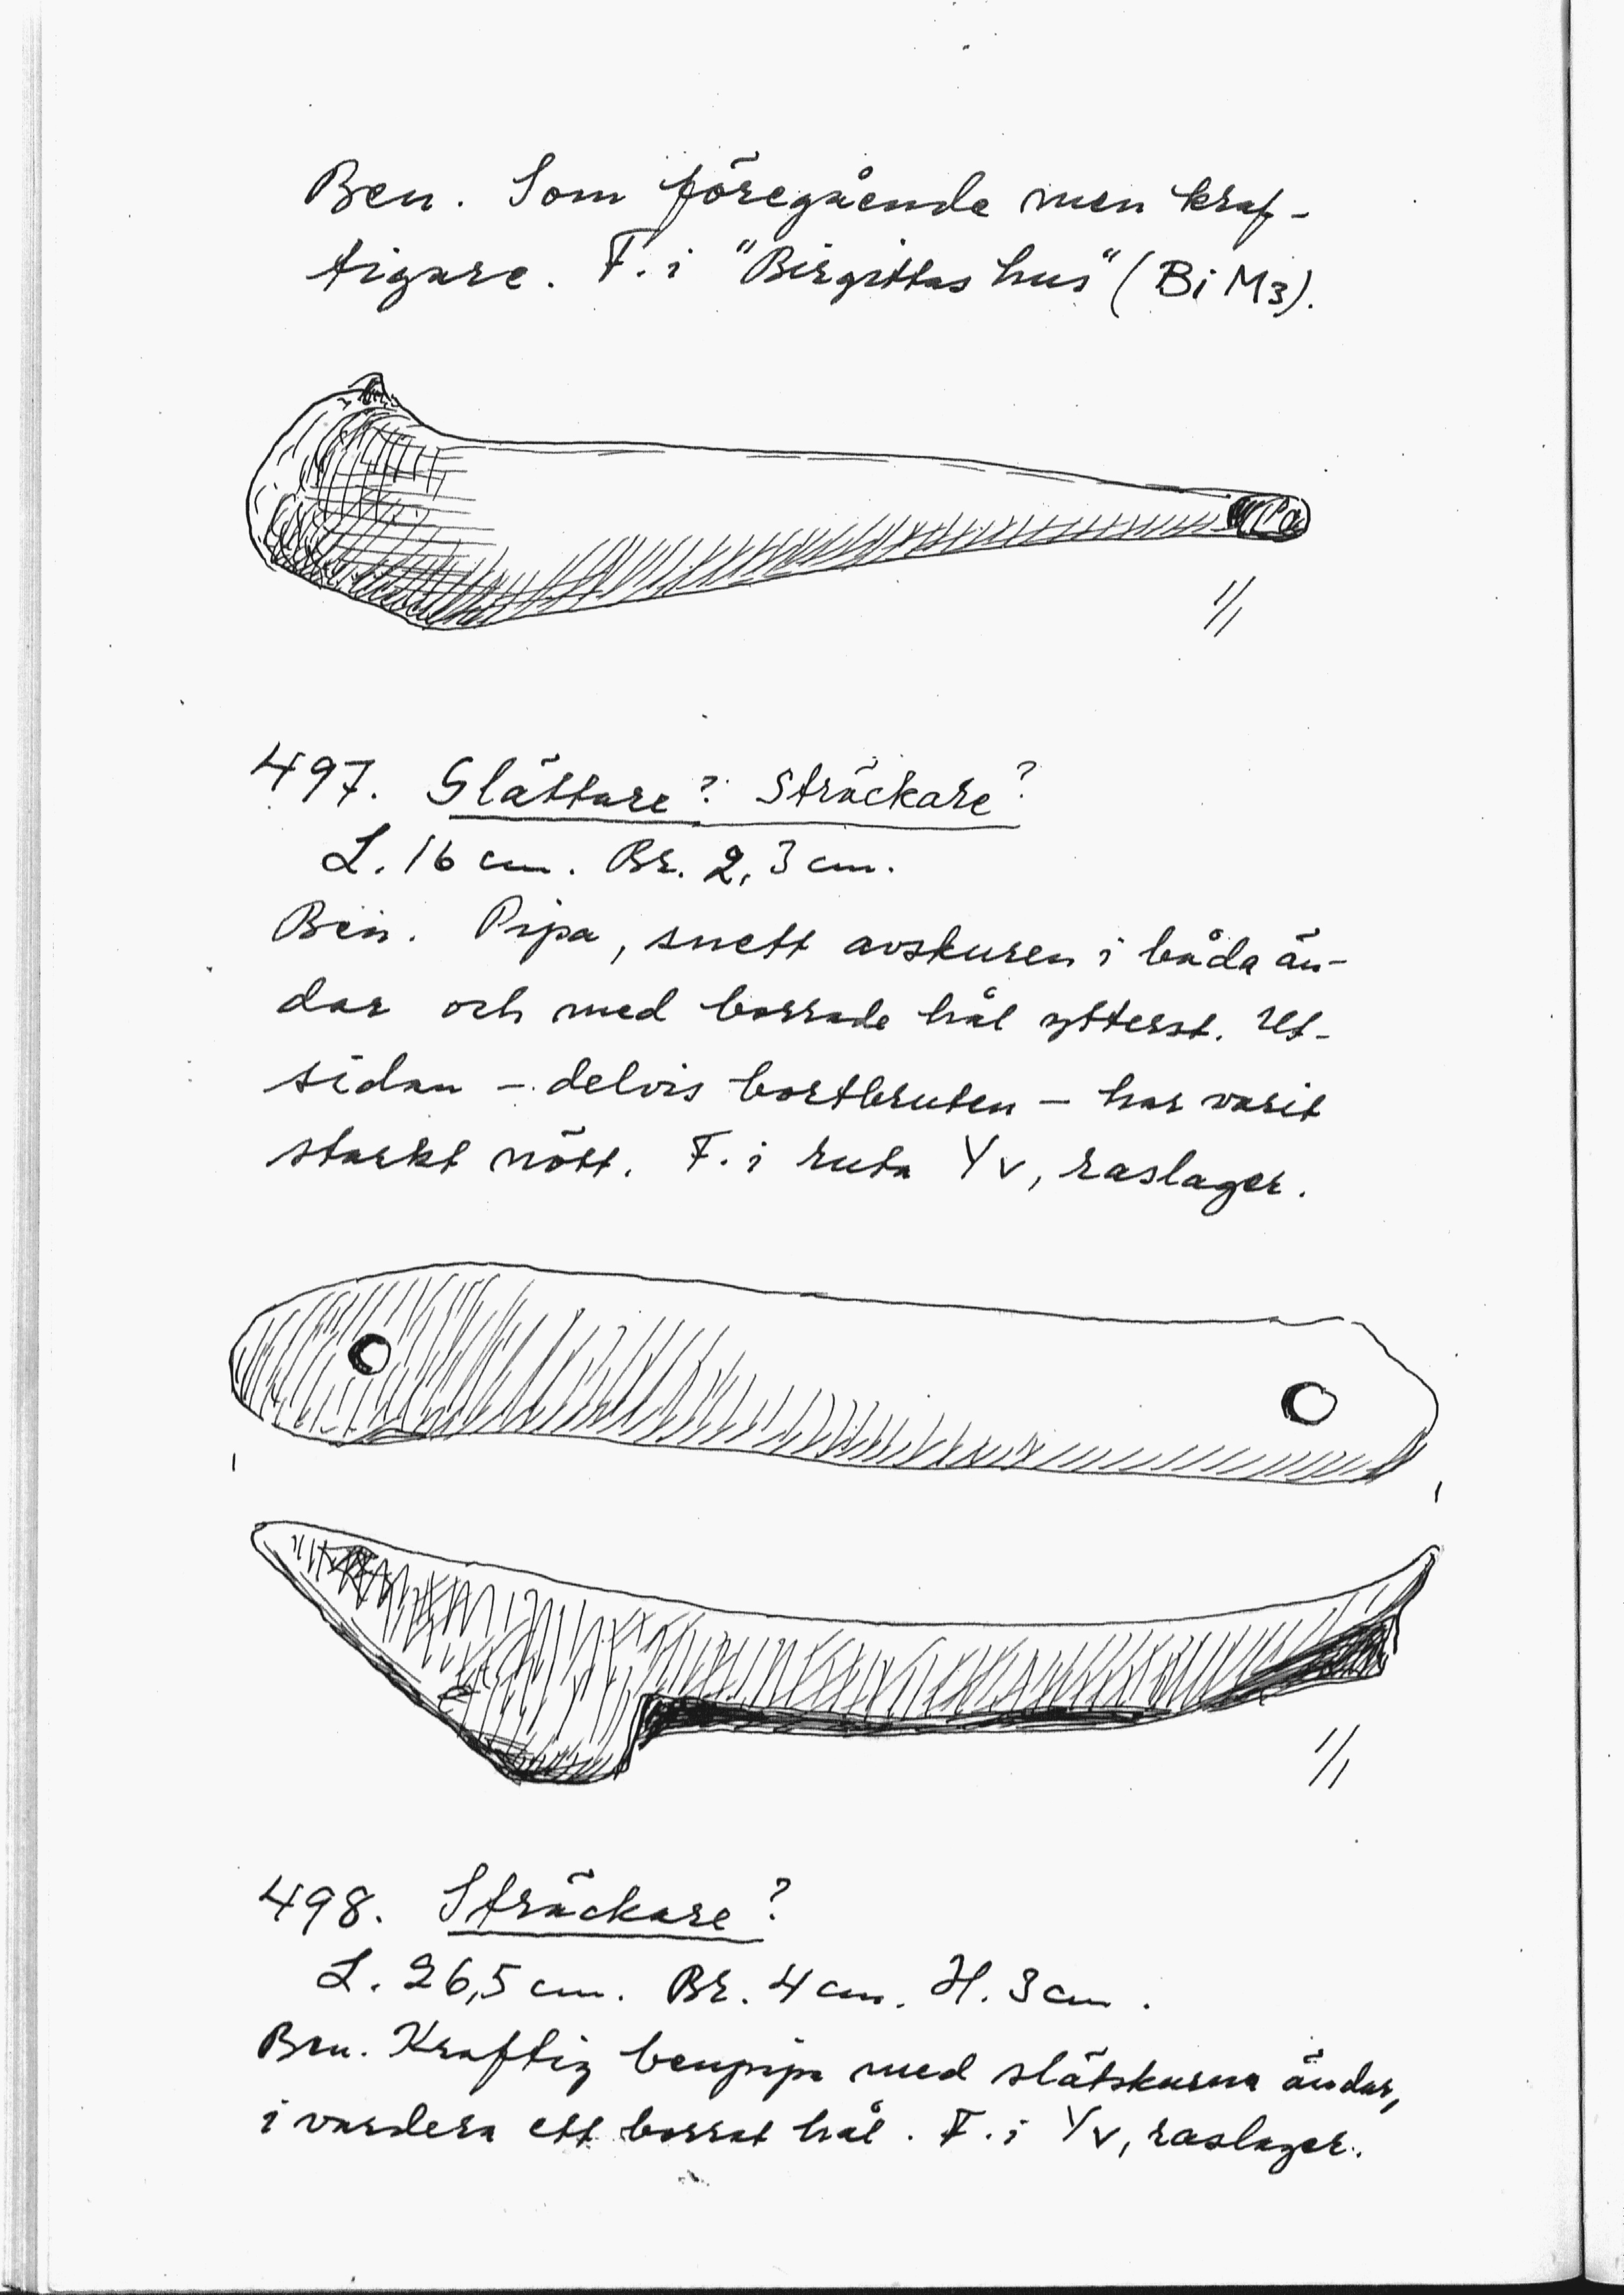 Ben. Som föregående men kraf-
tigare. F. i "Birgittas hus" (Bi M3).
1/1
497. Slättare? Sträckare?
L. 16 cm. Br. 2,3 cm.
Ben. Pipa, snett avskuren i båda än-
dar och med borrade hål ytterst. Ut-
sidan – delvis bortbruten – har varit
starkt nött. F. i ruta Yv, raslager.
1/1
498. Sträckare?
L. 26,5 cm. Br. 4 cm. H. 3 cm.
Ben. Kraftig benpipa med slätskurna ändar,
i vardera ett borrat hål. F. i Yv, raslager.